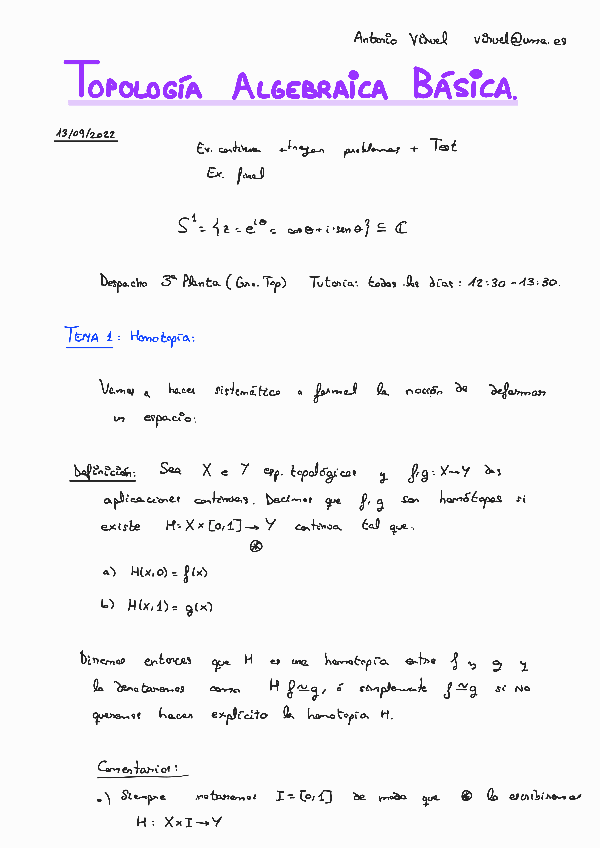 Antonio Viruel viruel@uma.es
TOPOLOGÍA ALGEBRAICA BÁSICA.
13/09/2022
Ev. continua entregar problemas + Test
Ex. final
S¹ = {z = e^{iθ} = cosθ + i·senθ} ⊆ ℂ
Despacho 3ª Planta (Geo. Top) Tutoría: todos los días: 12:30 - 13:30.
TEMA 1: Homotopía:
Vamos a hacer sistemático o formal la noción de deformar
un espacio:
Definición: Sea X e Y esp. topológicos y f,g: X→Y dos
aplicaciones continuas. Decimos que f, g son homótopas si
existe H: X × [0,1] → Y continua tal que:
⊛
a) H(x,0) = f(x)
b) H(x,1) = g(x)
Diremos entonces que H es una homotopía entre f y g y
lo denotaremos como H f≃g, ó simplemente f≃g si no
queremos hacer explícito la homotopía H.
Comentarios:
•) Siempre notaremos I = [0,1] de modo que ⊛ lo escribiremos
H: X×I→Y